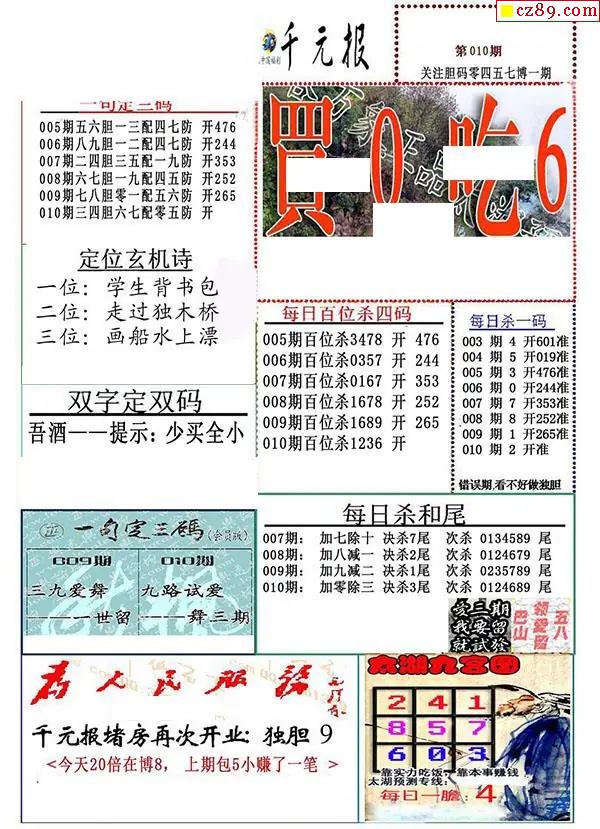 cz89.com
千元报
中国福利
第010期
关注胆码零四五七博一期
一句定三码
005期五六胆一三配四七防 开476
006期八九胆一二配四七防 开244
007期二四胆三五配一九防 开353
008期六七胆一九配四五防 开252
009期七八胆零一配五六防 开265
010期三四胆六七配零五防 开
買0吃6
定位玄机诗
一位：学生背书包
二位：走过独木桥
三位：画船水上漂
每日百位杀四码
005期百位杀3478 开 476
006期百位杀0357 开 244
007期百位杀0167 开 353
008期百位杀1678 开 252
009期百位杀1689 开 265
010期百位杀1236 开
每日杀一码
003 期 4 开601准
004 期 5 开019准
005 期 3 开476准
006 期 0 开244准
007 期 7 开353准
008 期 8 开252准
009 期 1 开265准
010 期 2 开准
错误期,看不好做独胆
双字定双码
吾酒——提示：少买全小
一句定三碼(会员版)
009期
三九爱舞
一一世留
010期
九路试爱
一一舞三期
每日杀和尾
007期： 加七除十 决杀7尾 次杀 0134589 尾
008期： 加八减一 决杀2尾 次杀 0124679 尾
009期： 加九减二 决杀1尾 次杀 0235789 尾
010期： 加零除三 决杀3尾 次杀 0124689 尾
爱三期
我要留
就試發
巴山
领爱留
五八
为人民服務
千元报堵房再次开业：独胆 9
<今天20倍在博8， 上期包5小赚了一笔 >
太湖九宫图
2 4 1
8 5 7
6 0 3
靠实力吃饭，靠本事赚钱
太湖预测专线：
每日一膽：4